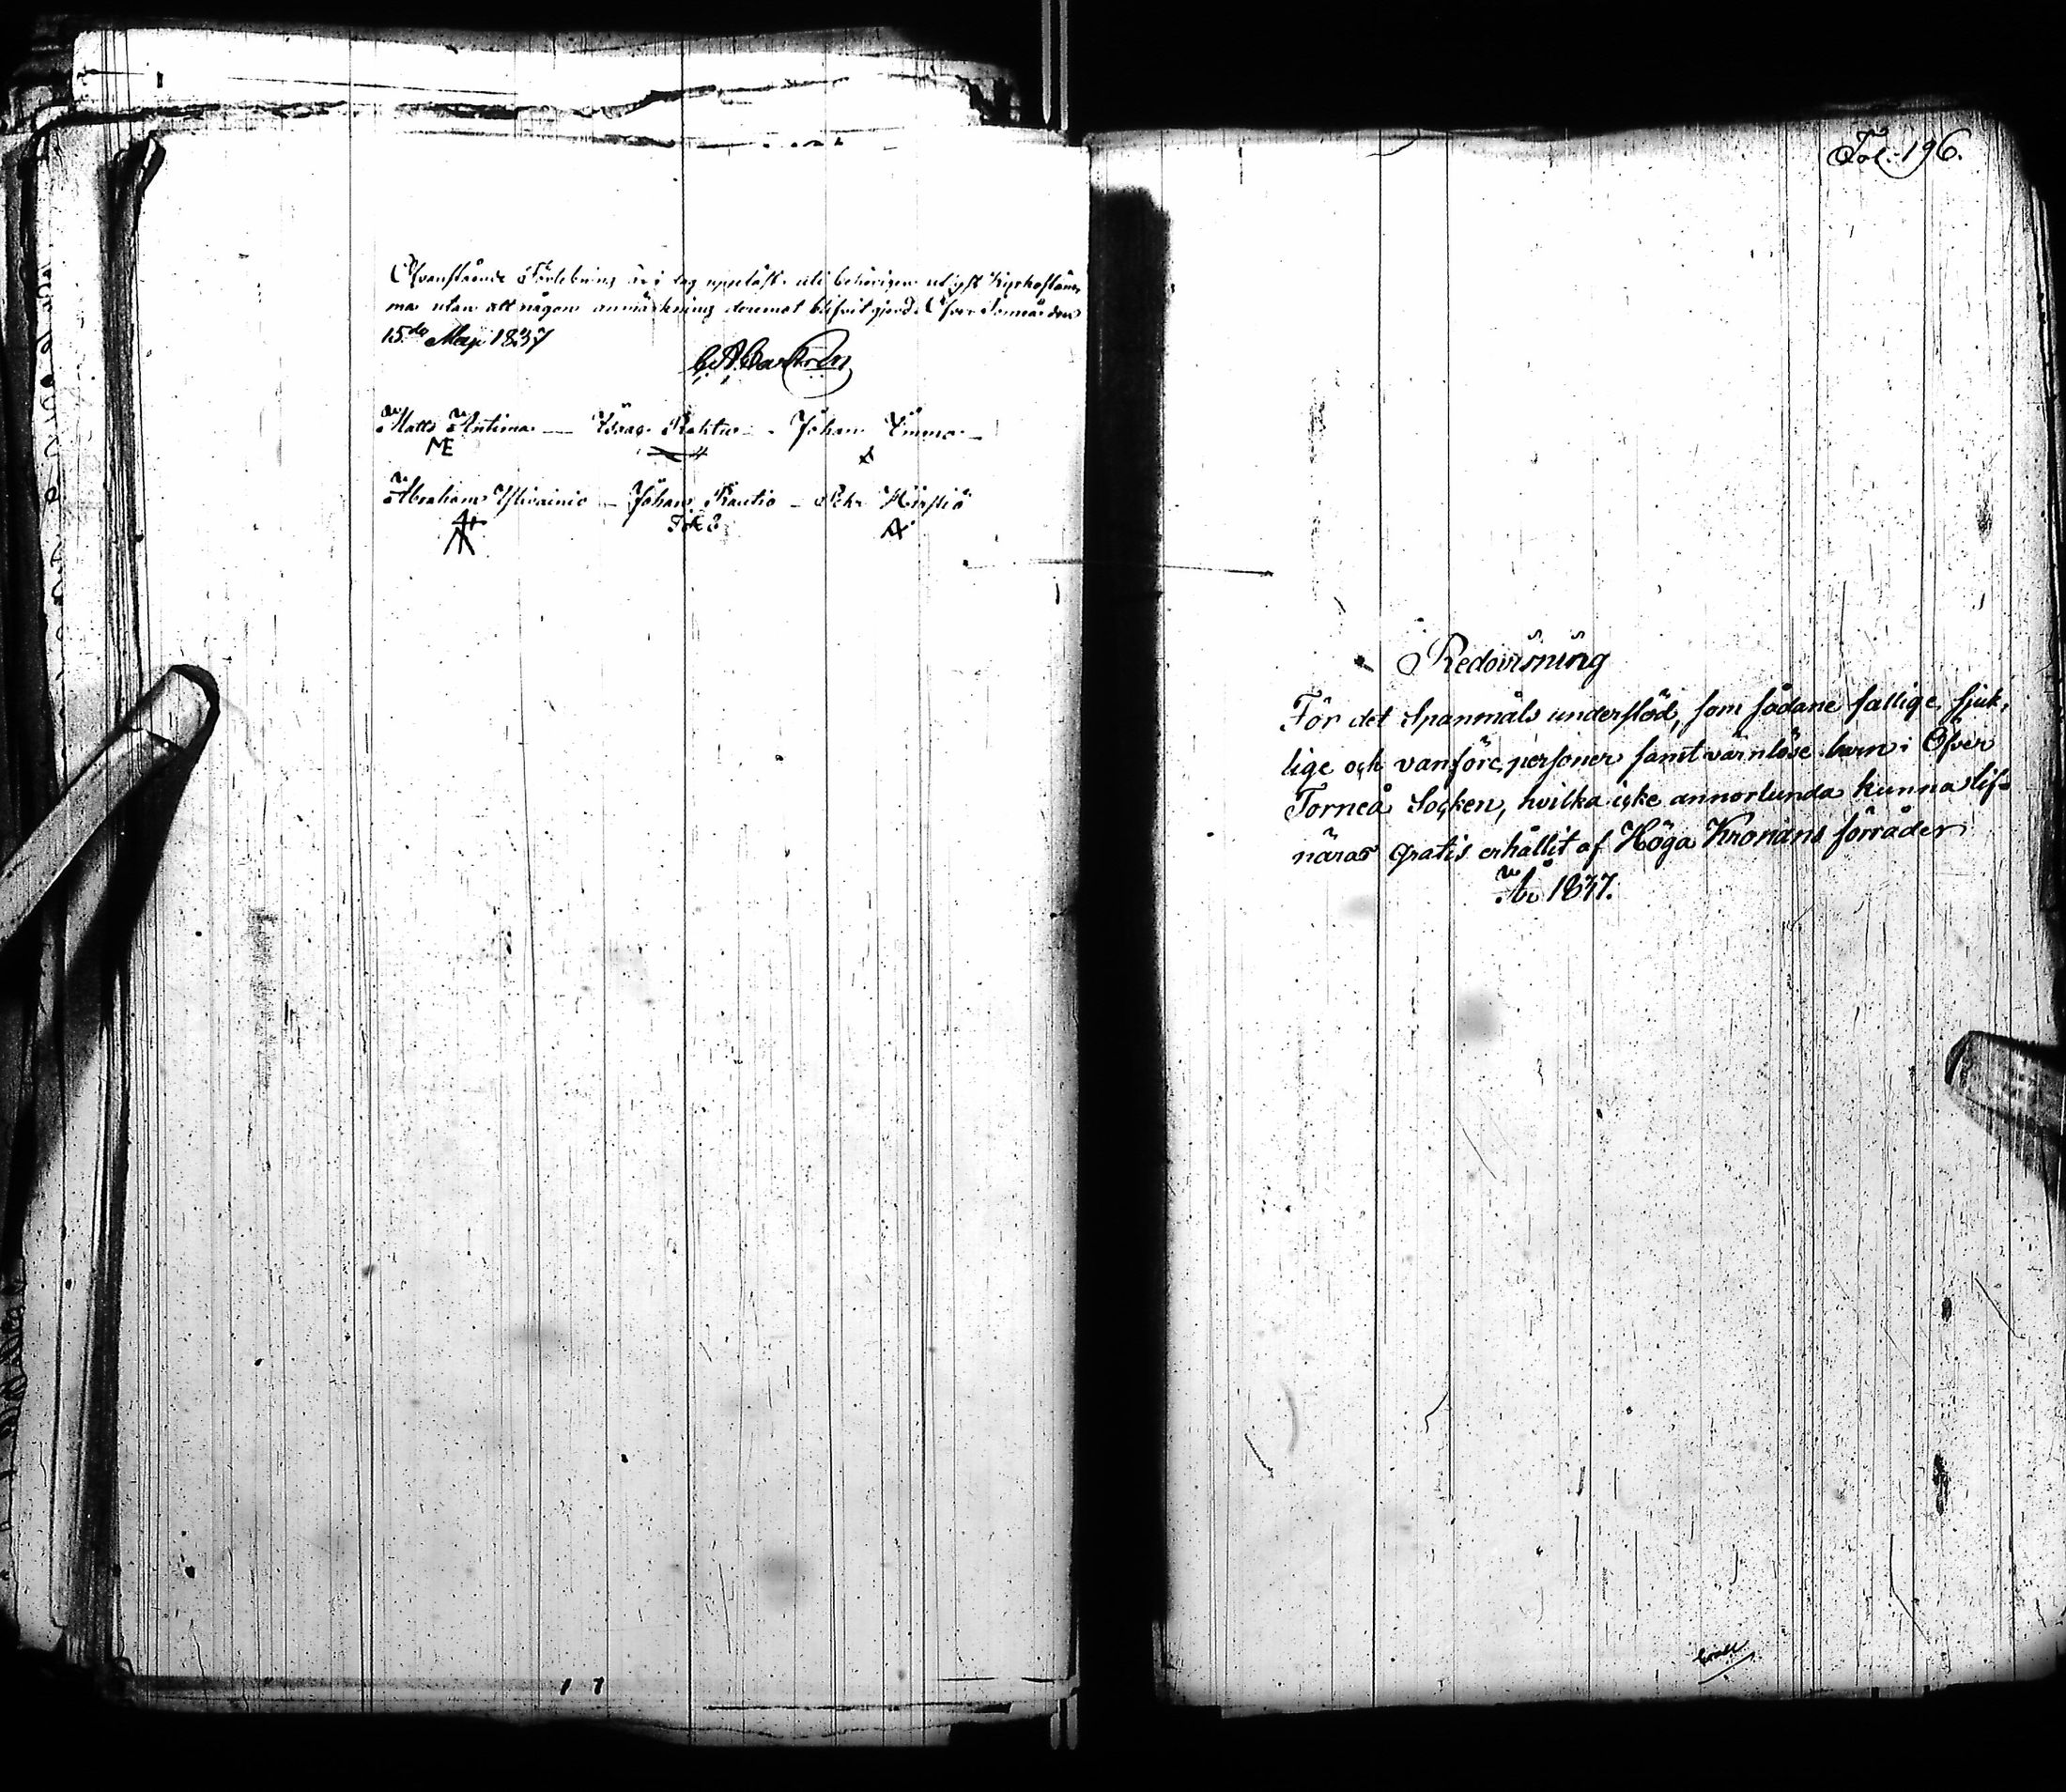 Ofvanstående Fördelning är i dag uppläst uti behörigen utlyst Kyrkostäm-
ma utan att någon anmärkning deremot blifvit gjord. Öfver Torneå den
15de Maji 1837
Matts Antima — Isaac — Johan Emma —
ME
Abraham Ylivainio — Johan Rautio — Petr
Fol: 196.
Redovisning
För det Spanmåls understöd, som sådane fattige, sjuk-
lige och vanföre personer samt värnlöse barn i Öfver
Torneå Socken, hvilka icke annorlunda kunna lif-
näras gratis erhållit af Höga Kronans förråder
Åo 1837.